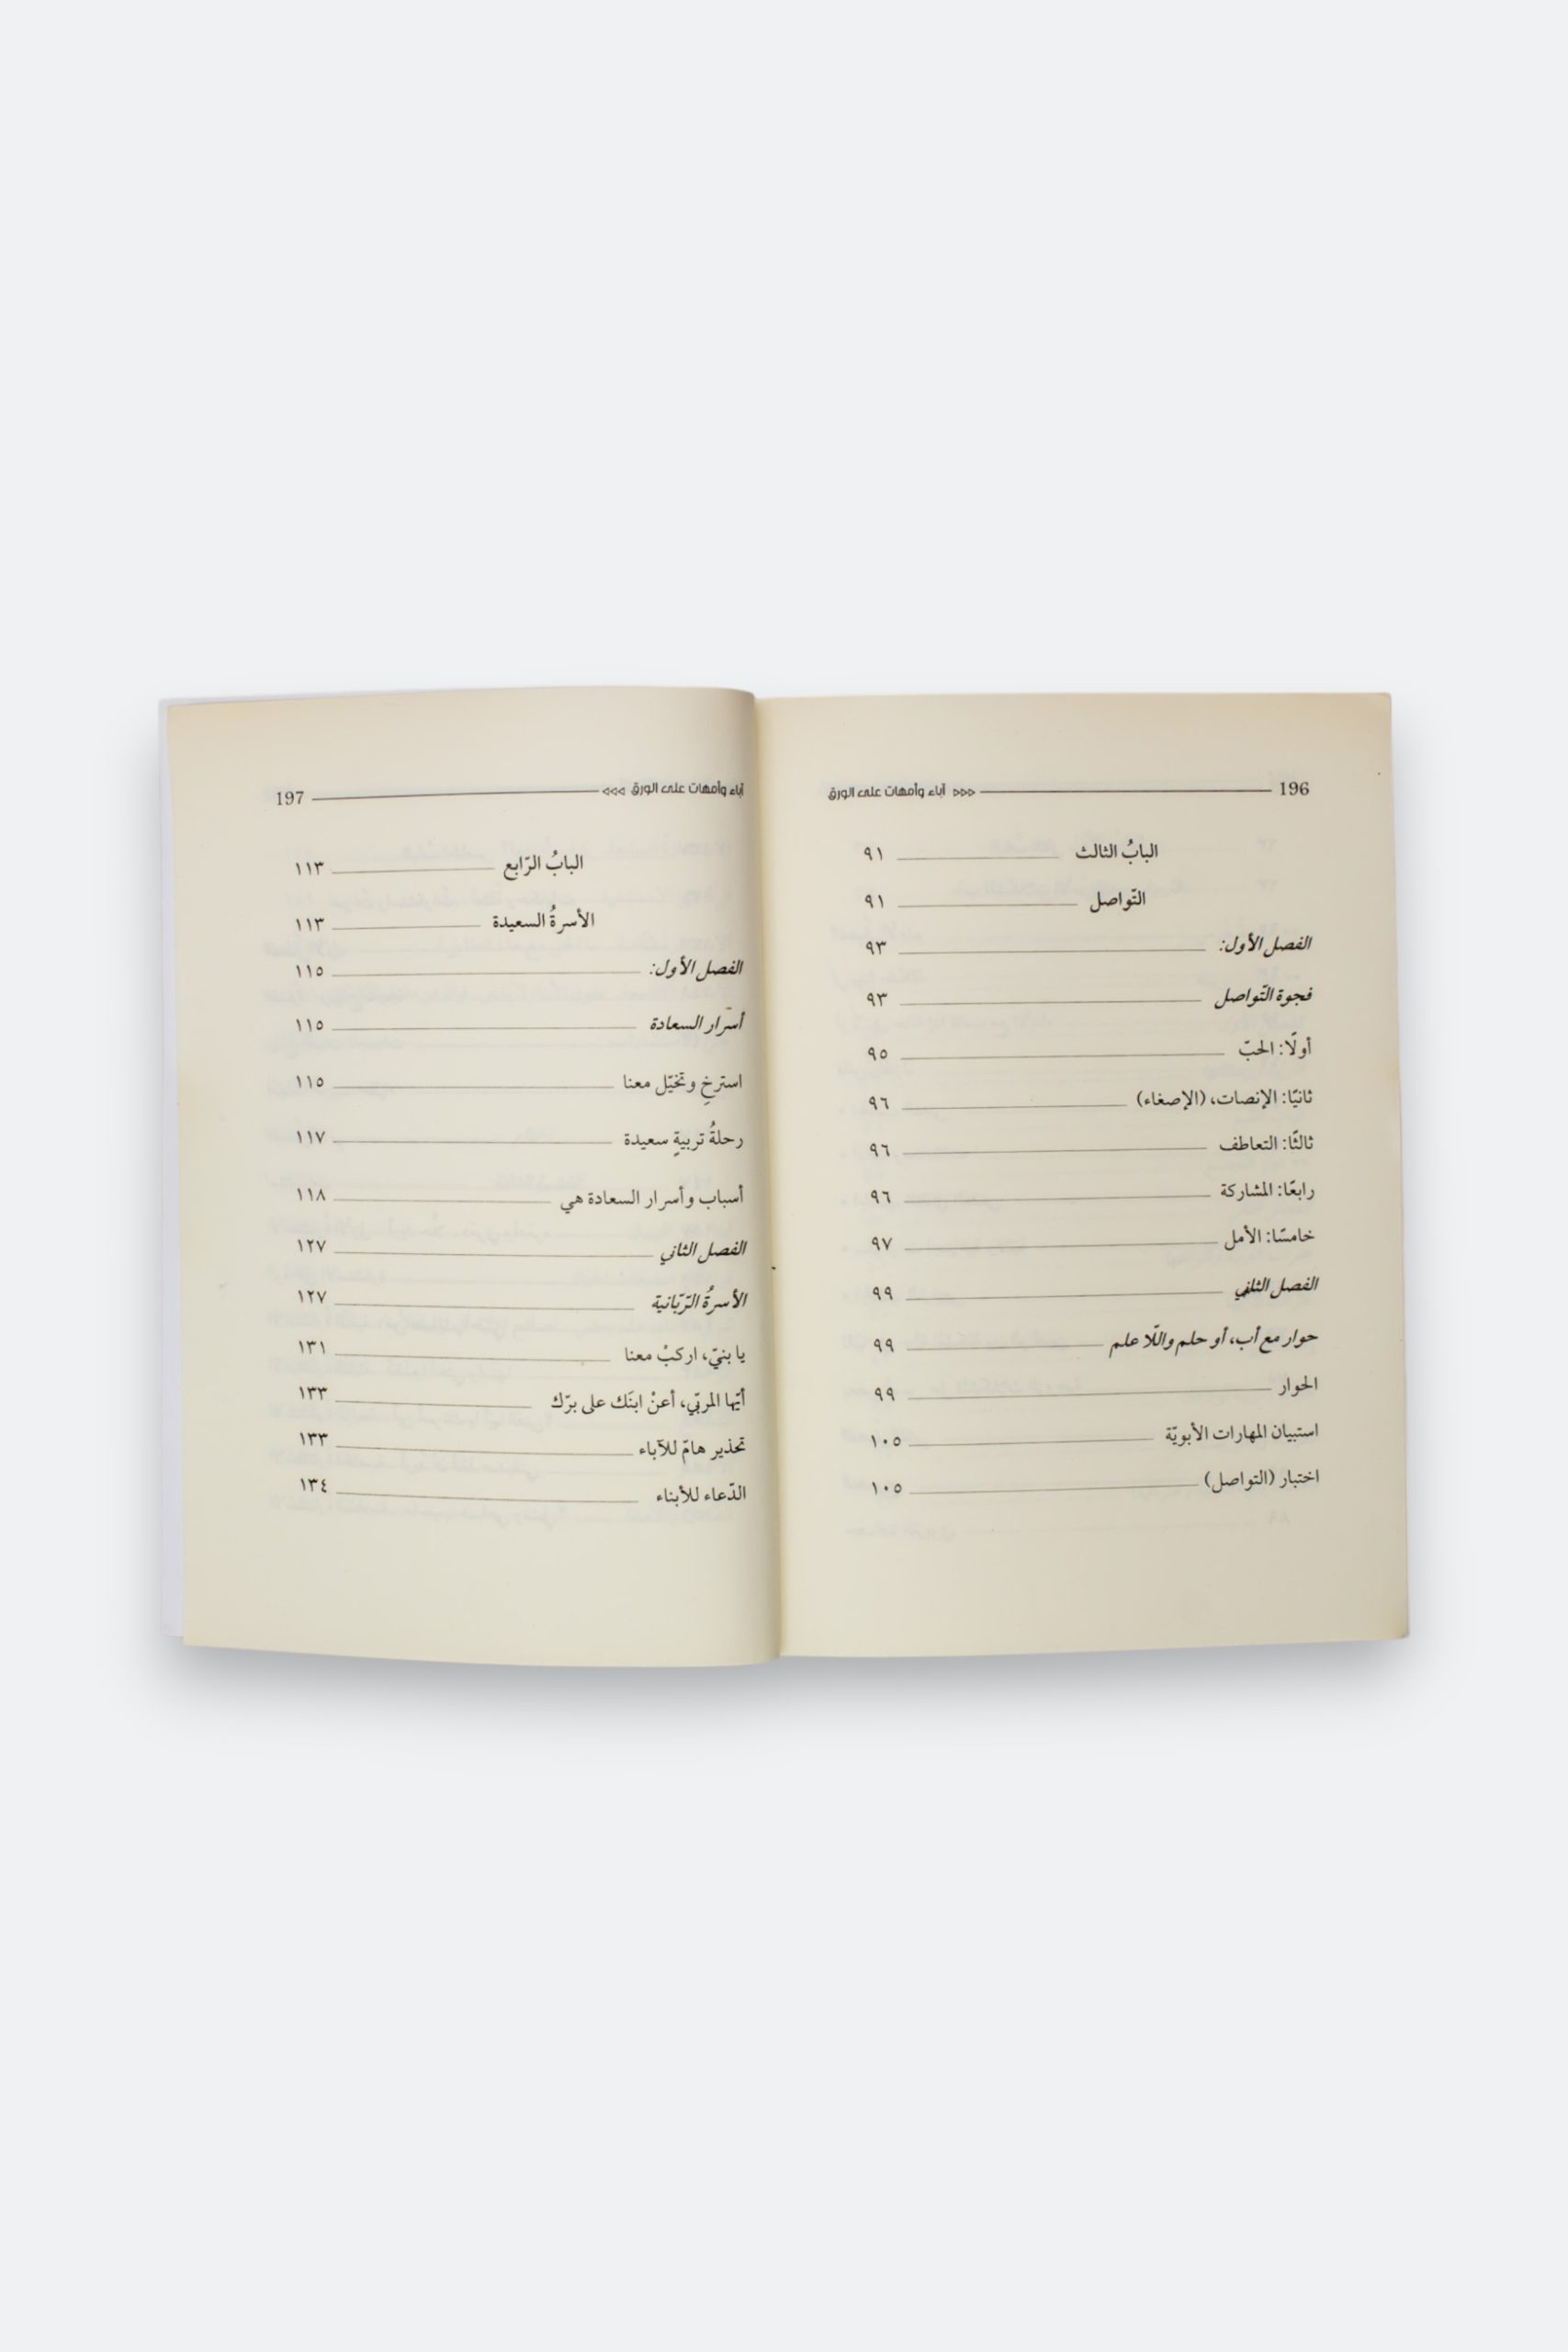 196 آباء وأمهات على الورق
البابُ الثالث ٩١
التّواصل ٩١
الفصل الأول: ٩٣
فجوة التّواصل ٩٣
أولًا: الحبّ ٩٥
ثانيًا: الإنصات، (الإصغاء) ٩٦
ثالثًا: التعاطف ٩٦
رابعًا: المشاركة ٩٦
خامسًا: الأمل ٩٧
الفصل الثاني ٩٩
حوار مع أب، أو حلم واللّا علم ٩٩
الحوار ٩٩
استبيان المهارات الأبويّة ١٠٥
اختبار (التواصل) ١٠٥
آباء وأمهات على الورق 197
البابُ الرّابع ١١٣
الأسرةُ السعيدة ١١٣
الفصل الأول: ١١٥
أسرار السعادة ١١٥
استرخِ وتخيّل معنا ١١٥
رحلةُ تربيةٍ سعيدة ١١٧
أسباب وأسرار السعادة هي ١١٨
الفصل الثاني ١٢٧
الأسرةُ الرّبّانية ١٢٧
يا بنيّ، اركبْ معنا ١٣١
أيّها المربّي، أعنْ ابنَك على برّك ١٣٣
تحذير هامّ للآباء ١٣٣
الدّعاء للأبناء ١٣٤